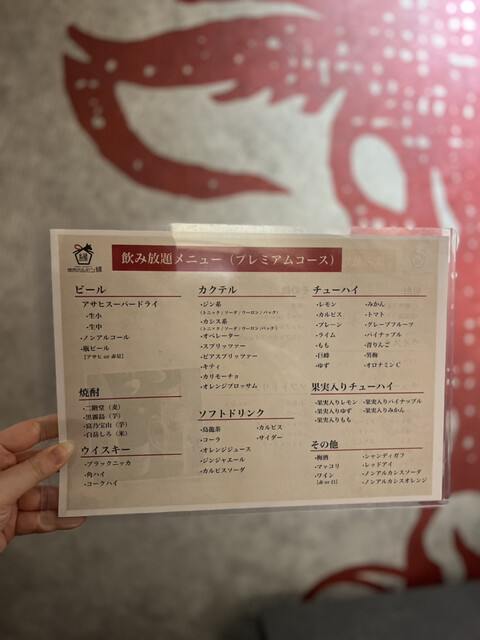 飲み放題メニュー（プレミアムコース）
ビール
アサヒスーパードライ
・生小
・生中
・ノンアルコール
・瓶ビール
［アサヒ or 赤星］
焼酎
・二階堂（麦）
・黒霧島（芋）
・富乃宝山（芋）
・白岳しろ（米）
ウイスキー
・ブラックニッカ
・角ハイ
・コークハイ
カクテル
・ジン系
（トニック / ソーダ / ウーロン / バック）
・カシス系
（トニック / ソーダ / ウーロン / バック）
・オペレーター
・スプリッツァー
・ビアスプリッツァー
・キティ
・カリモーチョ
・オレンジブロッサム
ソフトドリンク
・烏龍茶 ・カルピス
・コーラ ・サイダー
・オレンジジュース
・ジンジャエール
・カルピスソーダ
チューハイ
・レモン ・みかん
・カルピス ・トマト
・プレーン ・グレープフルーツ
・ライム ・パイナップル
・もも ・青りんご
・巨峰 ・男梅
・ゆず ・オロナミンC
果実入りチューハイ
・果実入りレモン ・果実入りパイナップル
・果実入りゆず ・果実入りみかん
・果実入りもも
その他
・梅酒 ・シャンディガフ
・マッコリ ・レッドアイ
・ワイン ・ノンアルカシスソーダ
［赤 or 白］ ・ノンアルカシスオレンジ